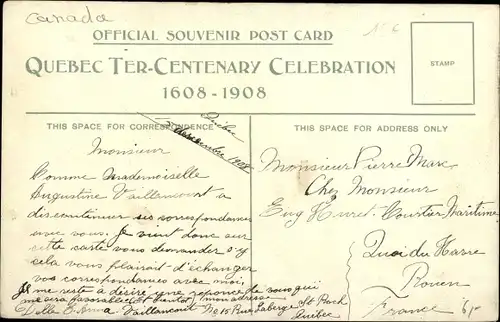 Canada
OFFICIAL SOUVENIR POST CARD
QUEBEC TER-CENTENARY CELEBRATION
1608-1908
STAMP
THIS SPACE FOR CORRESPONDENCE
THIS SPACE FOR ADDRESS ONLY
Québec
décembre 1908
Monsieur
Comme Mademoiselle
Augustine Vaillancourt a
discontinuer ses correspondances
avec vous. Je vient donc sur
cette carte vous demander s'y
cela vous plairait d'échanger
vos correspondances avec moi,
Je me reste à désire une réponse de vous qui
me sera favorable (et bientot) mon adresse
Delle Vaillancourt No 15 Rue Laberge St Roch
Québec
Monsieur Pierre Marc
Chez Monsieur
Eug Huret. Courtier Maritime
Quai du Havre
Rouen
France